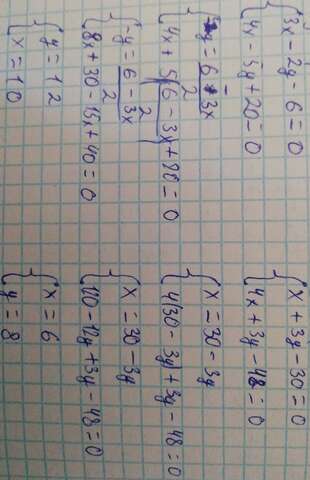 3x - 2y - 6 = 0
4x - 5y + 20 = 0
-y = 6 - 3x
2
4x + 5(6 - 3x) + 20 = 0
2
-y = 6 - 3x
2
8x + 30 - 15x + 40 = 0
y = 12
x = 10
x + 3y - 30 = 0
4x + 3y - 48 = 0
x = 30 - 3y
4(30 - 3y) + 3y - 48 = 0
x = 30 - 3y
120 - 12y + 3y - 48 = 0
x = 6
y = 8